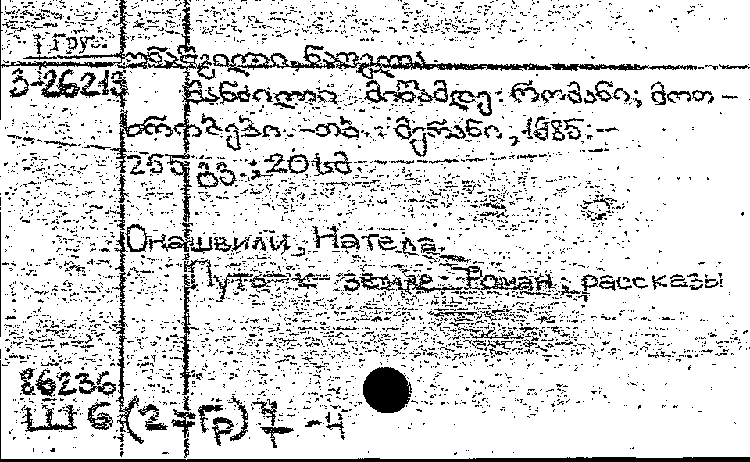 Груз.
ონაშვილი, ნათელა
3-26213
მანძილი მიწამდე: რომანი; მოთ-
ხრობები. -თბ.: მერანი, 1985.-
255 გვ.; 20 სმ.
Онашвили, Натела.
Путь к земле: Роман; рассказы
86236
Ш6(2=Гр)7-4